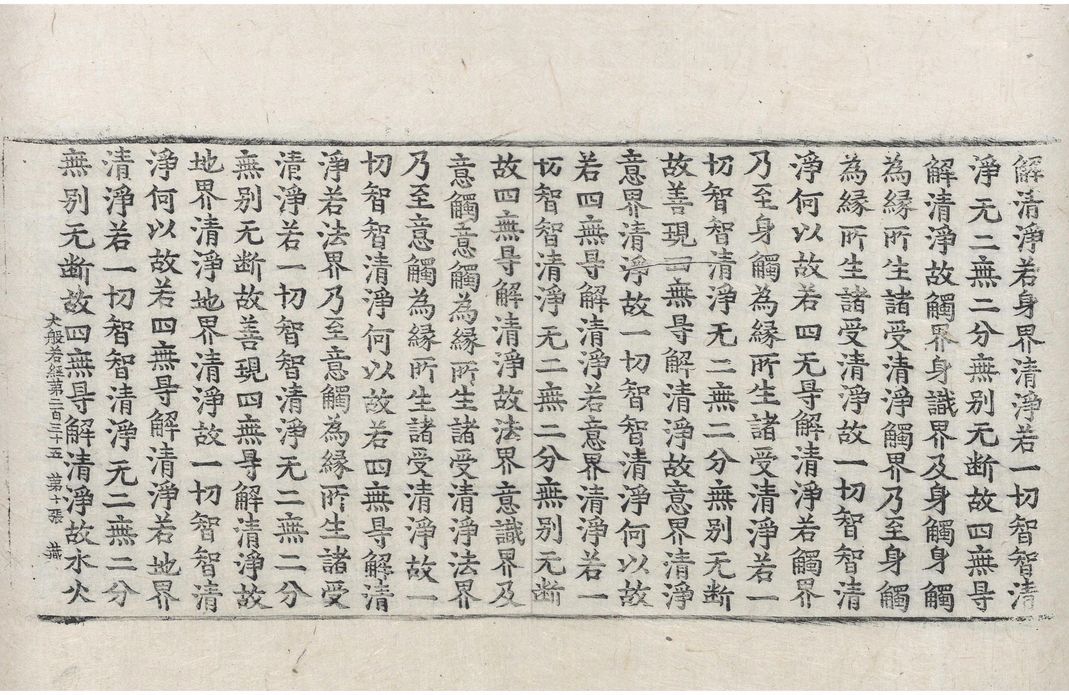 解清淨若身界清淨若一切智智清
淨无二無二分無別无断故四無㝵
解清淨故觸界身識界及身觸身觸
為縁所生諸受清淨觸界乃至身觸
為縁所生諸受清淨故一切智智清
淨何以故若四无㝵解清淨若觸界
乃至身觸為縁所生諸受清淨若一
切智智清淨无二無二分無別无断
故善現四無㝵解清淨故意界清淨
意界清淨故一切智智清淨何以故
若四無㝵解清淨若意界清淨若一
切智智清淨无二無二分無別无断
故四無㝵解清淨故法界意識界及
意觸意觸為縁所生諸受清淨法界
乃至意觸為縁所生諸受清淨故一
切智智清淨何以故若四無㝵解清
淨若法界乃至意觸為縁所生諸受
清淨若一切智智清淨无二無二分
無別无断故善現四無㝵解清淨故
地界清淨地界清淨故一切智智清
淨何以故若四無㝵解清淨若地界
清淨若一切智智清淨无二無二分
無別无断故四無㝵解清淨故水火
大般若經第二百三十五 第十張 藏